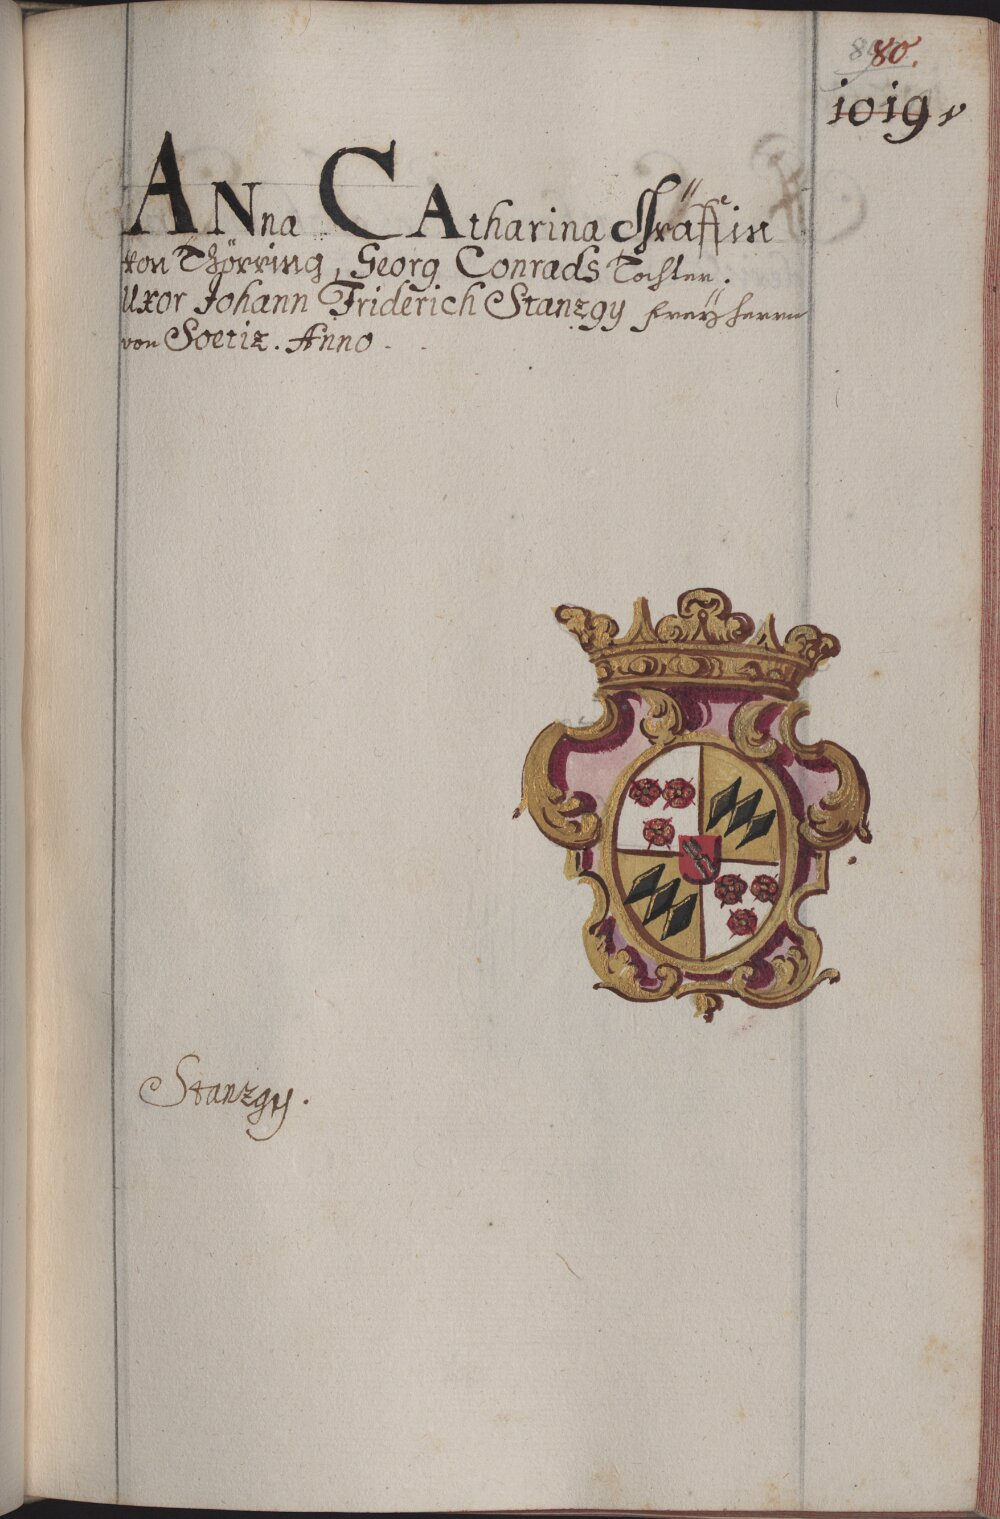 80.
1019
ANna CAtharina Gräffin
von Thörring, Georg Conrads Tochter.
Uxor Johann Friderich Stanzgÿ freÿherrn
von Soetiz. Anno . .
Stanzgÿ.